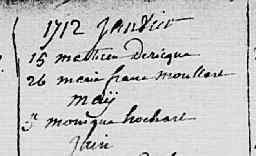 1712 janvier
15 mathieu Dericque
26 marie franc moullart
maÿ
3 monique hochart
juin